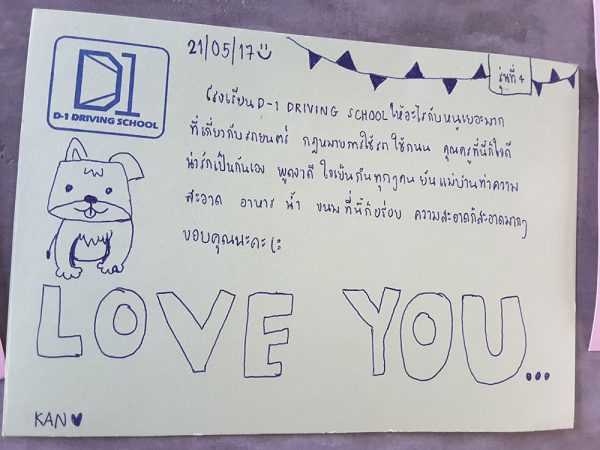 D1
D-1 DRIVING SCHOOL
21/05/17
รุ่นที่ 4
โรงเรียน D-1 DRIVING SCHOOL ให้อะไรกับหนูเยอะมาก
ที่เกี่ยวกับรถยนตร์ กฎหมายการใช้รถ ใช้ถนน คุณครูที่นี่ก็ใจดี
น่ารักเป็นกันเอง พูดจาดี ใจเย็นกันทุกๆคน ยันแม่บ้านทำความ
สะอาด อาหาร น้ำ ขนม ที่นี่ก็อร่อย ความสะอาดก็สะอาดมากๆ
ขอบคุณนะคะ
LOVE YOU...
KAN